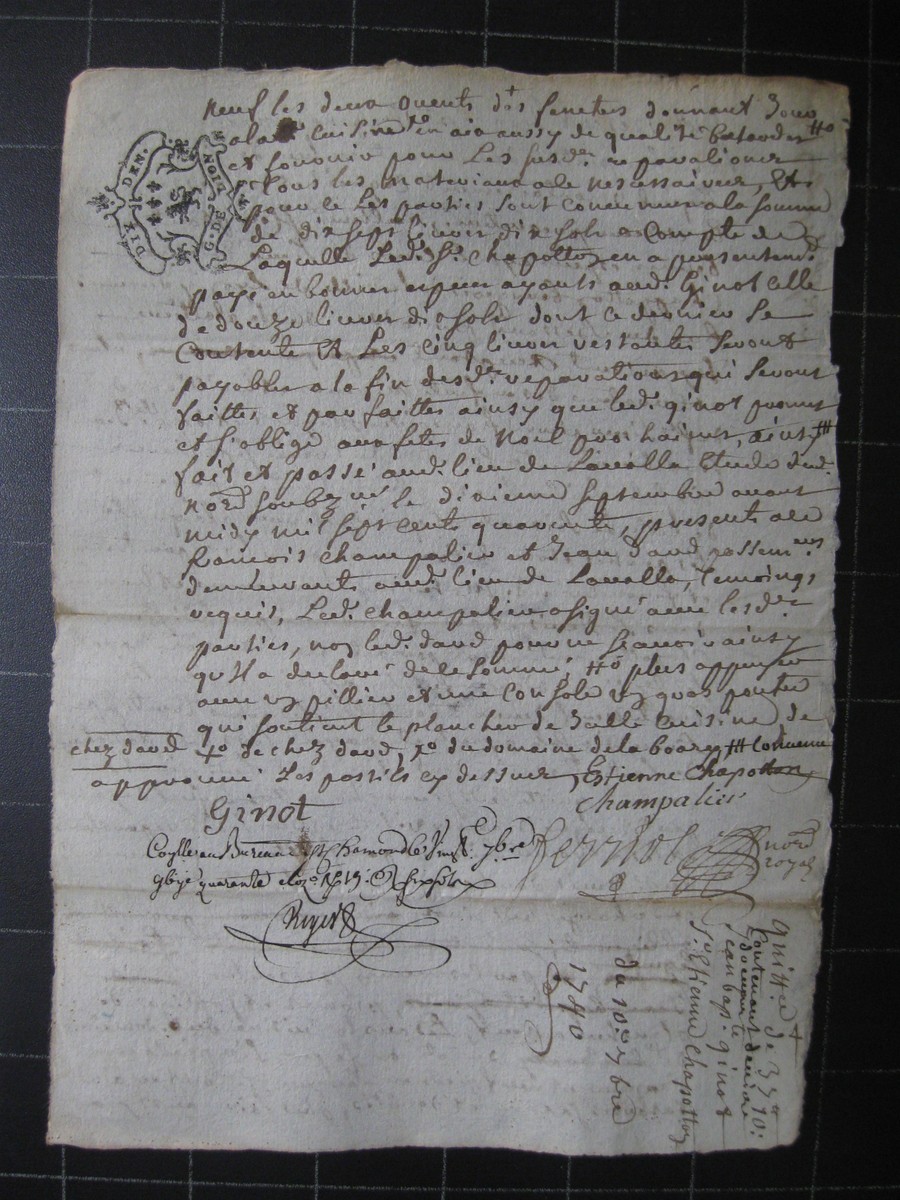 neuf les deux ouents des fenetres donnant Jour
a la cuisine en aix aussy de qualité batardes
et fournir pour les susd. reparations
tous les materiaux necessaires, et
pour ce les parties sont convenues a la somme
de dix sept livres dix sols a compte de
Laquelle led. Sr. Chapotton en a presentem.
payé en bonnes especes ayants aud. Ginot celle
de douze livres dix sols dont ce dernier se
contente et les cinq livres restantes seront
payables a la fin desd. reparations qui seront
faittes et parfaittes ainsy que led. ginot promet
et s'oblige aux fetes de noel prochaines, ainsy
fait et passé aud. lieu de Lavalla Etude dud.
nore. soubzné. le dixieme septembre avant
midy mil sept cents quarante, presents a ce
francois champalier et Jean david passem.
demeurants aud. lieu de Lavalla, temoings
requis, Led. champalier a signé avec lesd.
parties, non led. david pour ne scavoir ainsy
qu'il a declaré de le sommé, plus appuyer
avec un pillier et une console un quas poutre
qui soutient le plancher de la de cuisine, de
chez david de chez david, du domaine de la convenu
approuvé Les postils cy dessus, Estienne Chapotton
Ginot champalier
Collé au Bureau de St. Chamond le 7bre nore
quarante royal
du 10e 7bre
1740
quittce de 10:
contenant
donnée par
Jean bap. ginot
Sr. Estienne Chapotton
DIX DEN.
G. DE LION